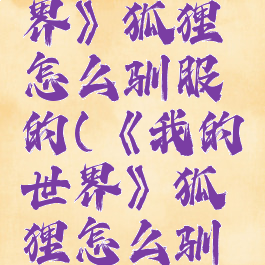 界》狐狸
怎么驯服
的(《我的
世界》狐
狸怎么驯